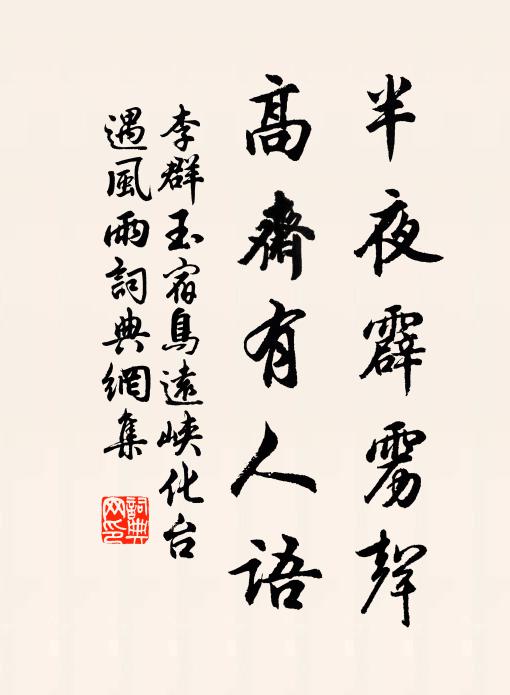 半夜霹雳聲
高齋有人語
李群玉宿鳥遠峽化台
遇風雨詞典網集
詞典
网印